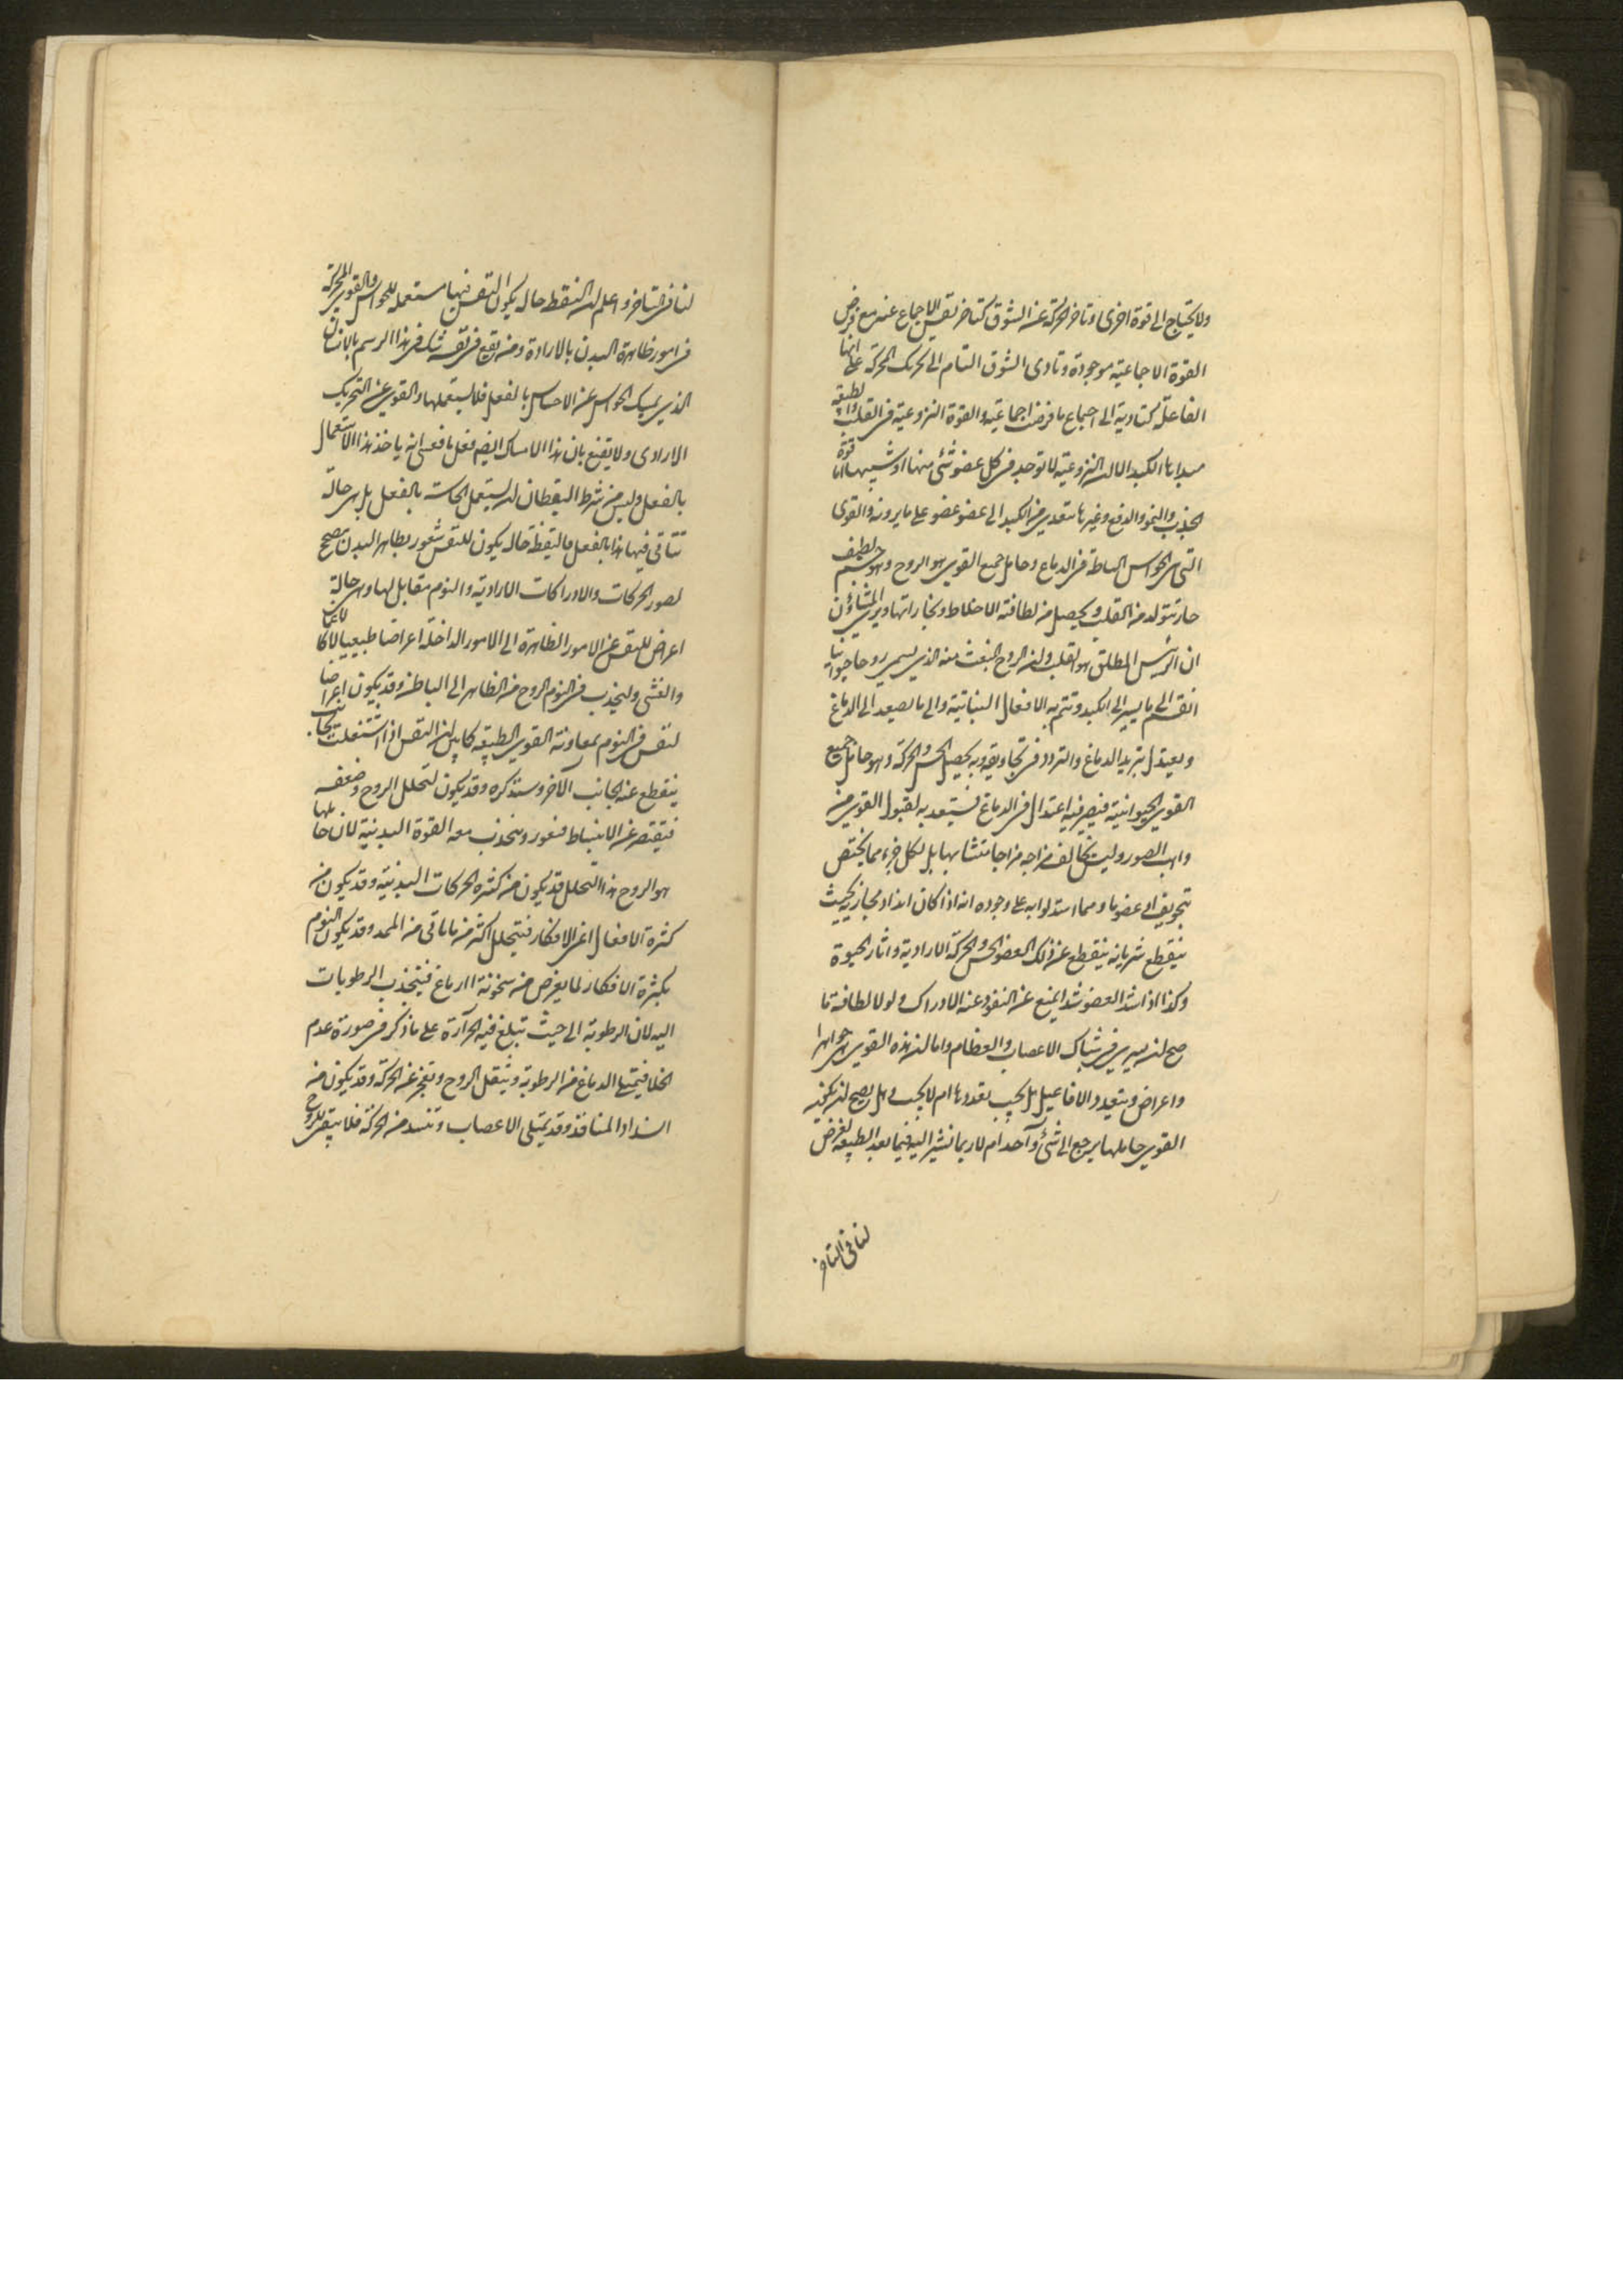 ولا يحتاج الى قوة اخرى وتاخر الحركة عن الشوق كتاخر نفس الاجماع عنه مع فرض
القوة الاجماعية موجودة وتادى الشوق التام الى تحريك المحركة على انها
الفاعلة كتاديه الى اجماع ما فرضت اجماعية والقوة النزوعية فى القلب
مبداها الكبد الا ان النزوعية لا توجد فى كل عضو شئ منها او شبيهها اما قوة
الجذب والنمو والدفع وغيرها متعد من الكبد الى عضو عضو على ما يرونه والقوى
التى هى الحواس الباطنة فى الدماغ وحامل جميع القوى هو الروح وهو جسم لطيف
حار يتولد من القلب ويحصل من لطافة الاخلاط وبخاراتها ويرى المشاؤن
ان الرئيس المطلق هو القلب وان الروح المنبعث منه الذى يسمى روحا حيوانيا
انقسم الى ما يسير الى الكبد وتتم به الافعال النباتية والى ما يصعد الى الدماغ
ويعتدل بتبريد الدماغ والتردد فى تجاويفه وبه يحصل الحس والحركة وهو حامل جميع
القوى الحيوانية فيصير فيه اعتدال فى الدماغ فيستعد به لقبول القوى من
واهب الصور وليس يخالف مزاجه مزاجا متشابها بل لكل جزء مما يختص
بتجويف او عضو ما ومما استدلوا به على وجوده انه اذا كان انسداد مجاريه بحيث
ينقطع شريانه ينقطع عن ذلك العضو الحس والحركة الارادية واثار الحيوة
وكذا اذا شد العضو شدا يمنع عن النفوذ عنه الادراك ولولا لطافته ما
صح ان يسرى فى شباك الاعصاب والعظام واما ان هذه القوى جواهرا
واعراض وبتعدد الافاعيل هل يجب تعددها ام لا يجب وهل يصح ان يكون
القوى حاملها يرجع الى شئ واحد ام لا ربما نشير اليه فيما بعد الطبيعة لغرض
لنا فى التاخر
لنا فى التاخر واعلم ان التيقظ حالة يكون النفس فيها مستعملة للحواس والقوى المحركة
فى امور ظاهرة البدن بالارادة ومنه يقع فى نفسه شك فى هذا الرسم بالانسان
الذى يمسك الحواس عن الاحساس بالفعل فلا يستعملها والقوى عن التحريك
الارادى ولا يقنع بان هذا الامساك ايضا فعل ما فعسى انه ياخذ هذا الاستعمال
بالفعل وليس من شرط اليقظان ان يستعمل الحاسة بالفعل بل هى حالة
تتاتى فيها هذا بالفعل فاليقظة حالة يكون للنفس شعور بظاهر البدن تصح
لصور الحركات والادراكات الارادية والنوم مقابل لها وهى حالة
اعراض للنفس عن الامور الظاهرة الى الامور الداخلة اعراضا طبيعيا لا كالاغماء
والغشى ولينجذب فى النوم الروح من الظاهر الى الباطن وقد يكون اعراضا
لنفس فى النوم بمعاونة القوى الطبيعة كما بين ان النفس اذا اشتغلت بجانب
ينقطع عنه الجانب الاخر وستذكره وقد يكون لتحلل الروح وضعفه
فيقتصر عن الانبساط فيغور وينجذب معه القوة البدنية لان حاملها
هو الروح هذا التحلل قد يكون من كثرة الحركات البدنية وقد يكون من
كثرة الافعال اعنى الافكار فيتحلل اكثر من ما ياتى من الممد وقد يكون النوم
بكثرة الافكار لما يعرض من سخونة الدماغ فينجذب الرطوبات
اليه لان الرطوبة الى حيث تبلغ فيه الحرارة على ما ذكر فى صورة عدم
الخلا فيمتلئ الدماغ من الرطوبة ويثقل الروح ويعجز عن الحركة وقد يكون من
انسداد المنافذ وقد يمتلى الاعصاب وتنسد من الحركة فلا يبقى للروح